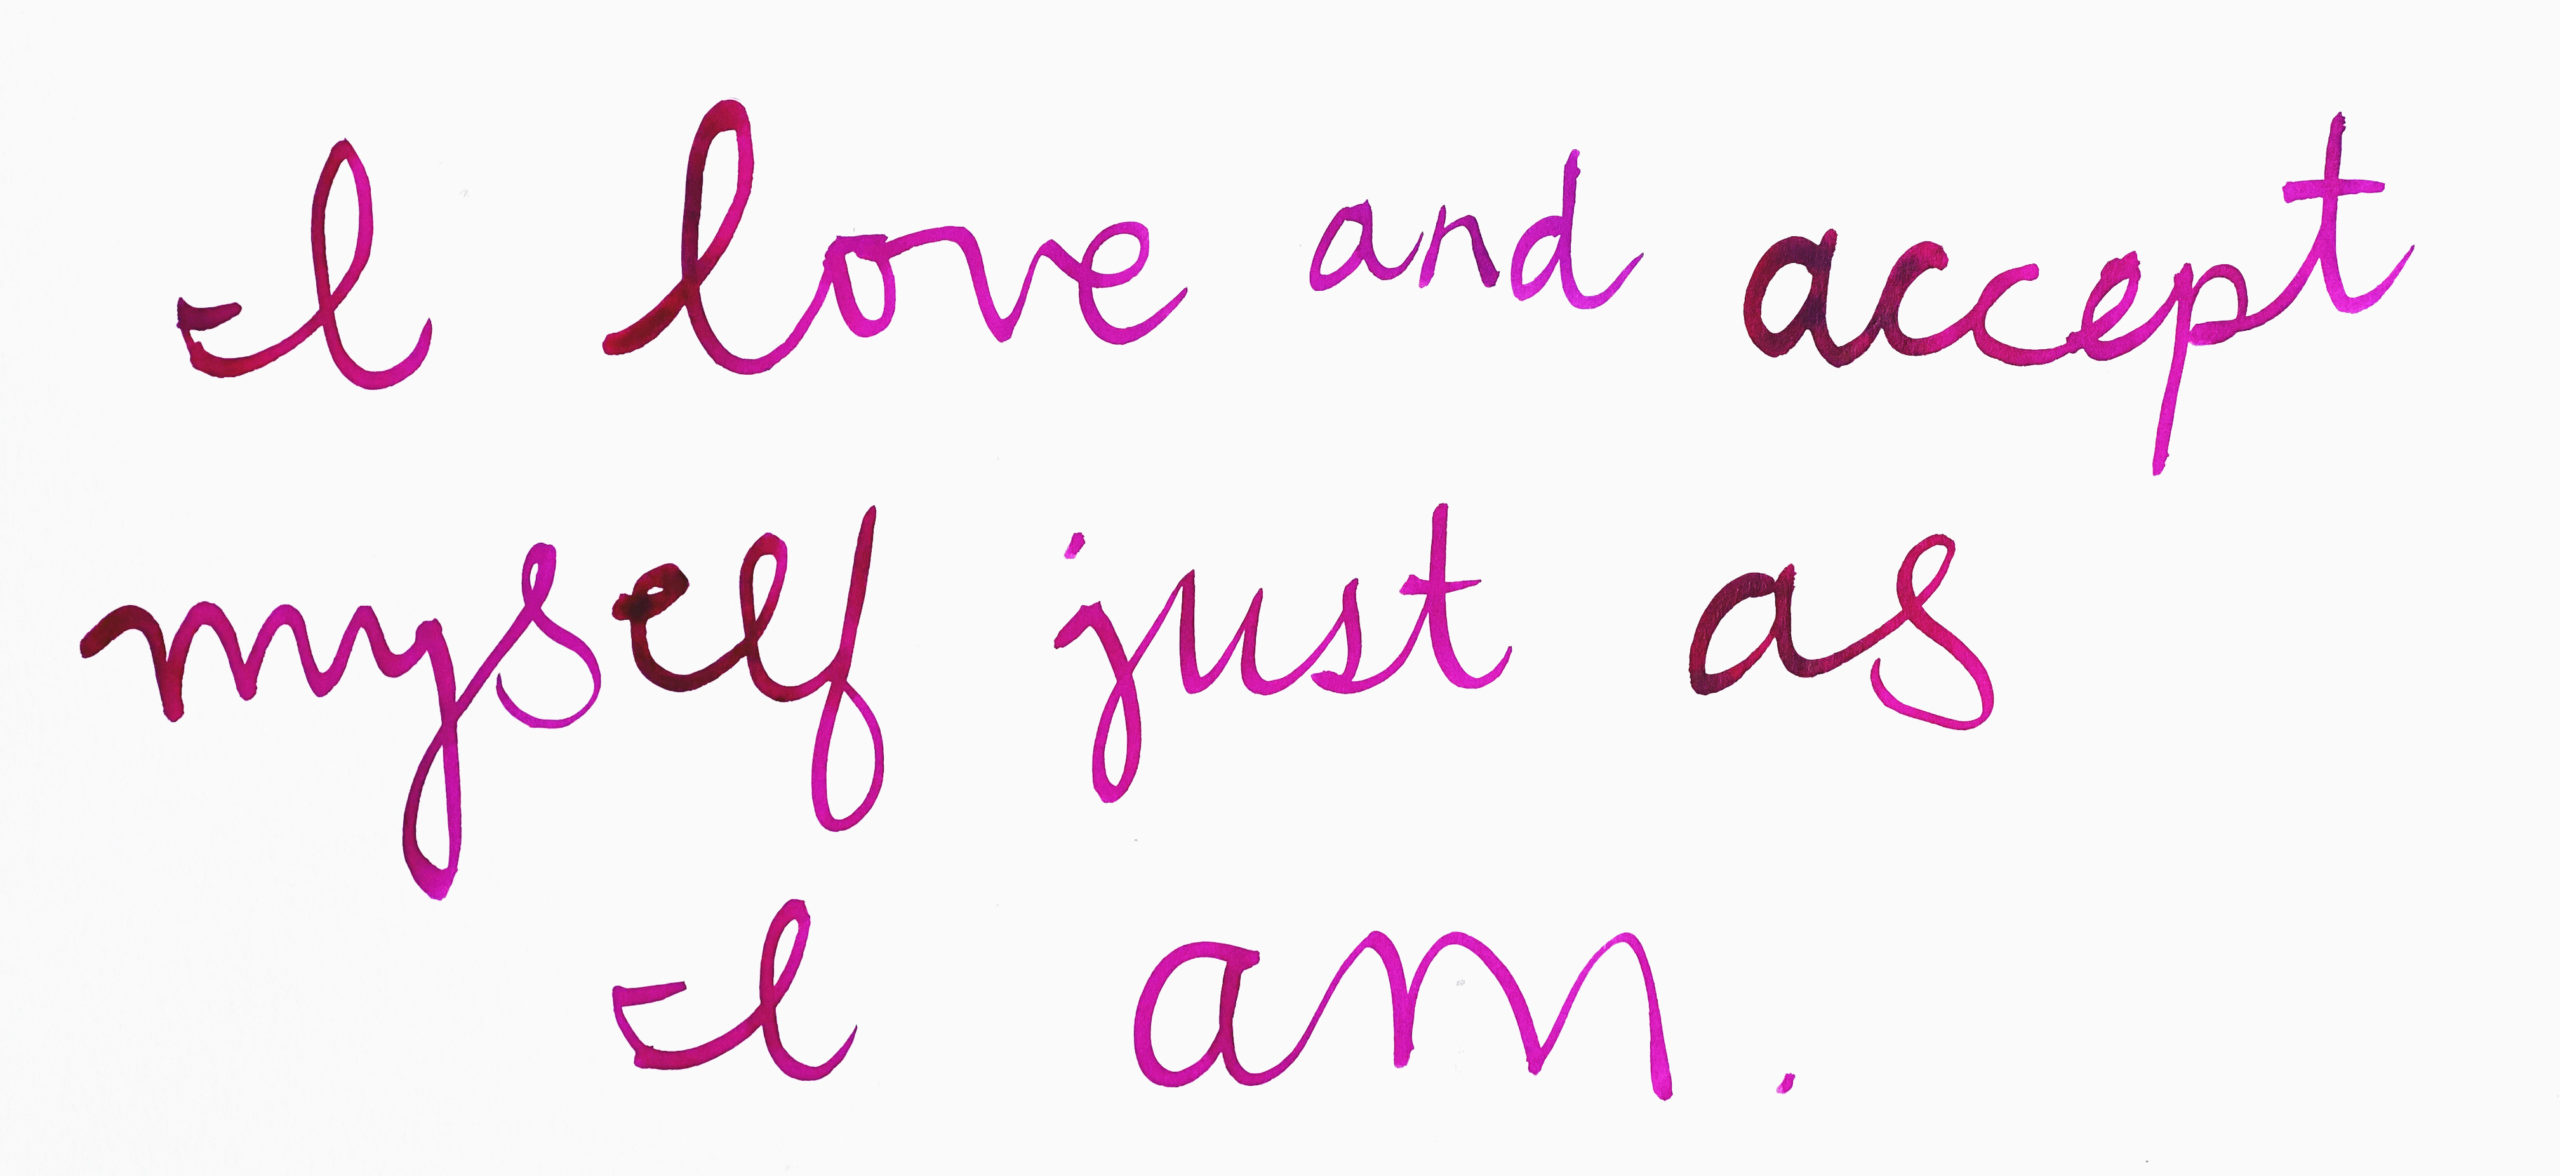 I love and accept
myself just as
I am.